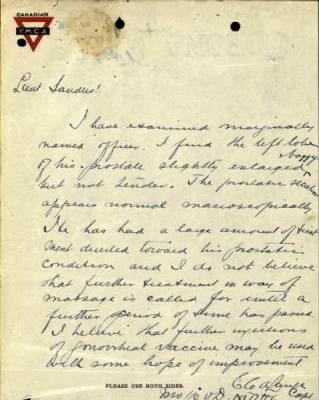 CANADIAN
YMCA
Lieut. Sanders!
I have examined marginally
named officer. I find the left lobe
of his prostate slightly enlarged boggy
but not tender. The prostatic
appears normal macroscopically
He has had a large amount of treat
ment directed toward his prostatic
condition and I do not believe
that further treatment in way of
massage is called for until a
further period of time has passed.
I believe that further injections
of gonorrhial vaccine may be used
with some hope of improvement
PLEASE USE BOTH SIDES.
Capt
MO i/c V.D.